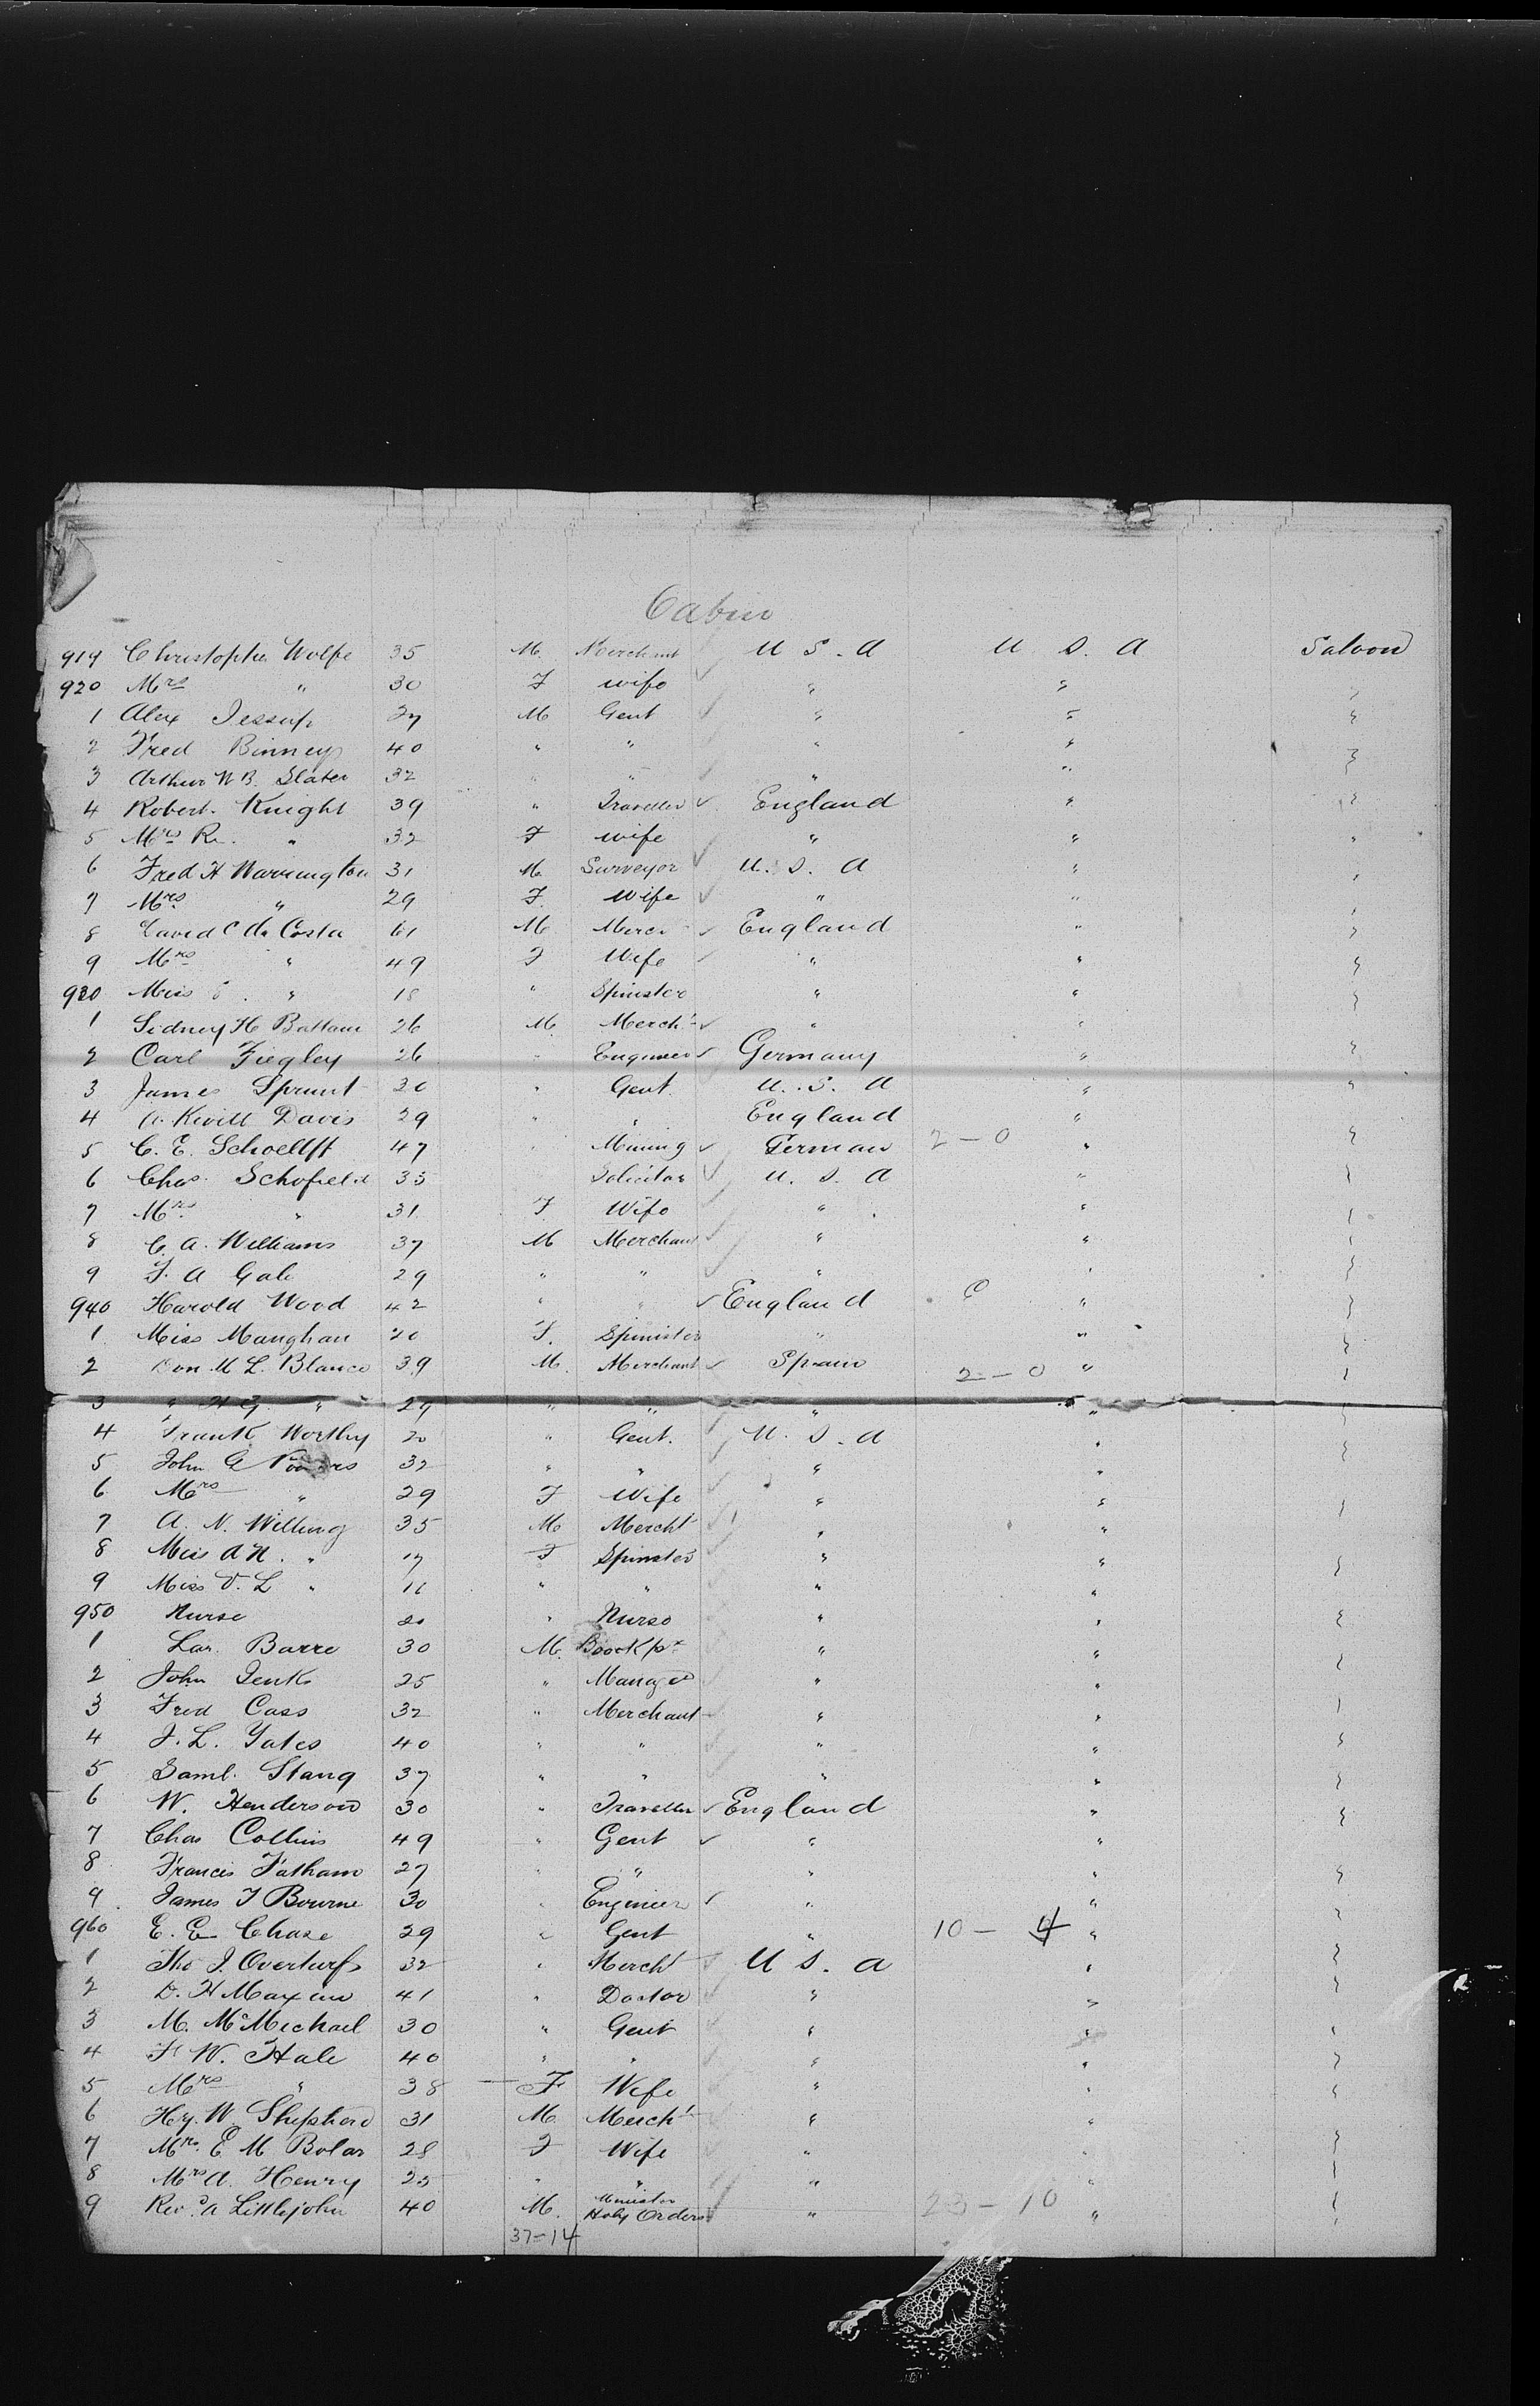 Cabin
919 Christopher Wolfe 35 M. Merchant U S. A U. S. A Saloon
920 Mrs " 30 F wife " "
1 Alex Jessup 27 M Gent " "
2 Fred Binney 40 " " " "
3 Arthur W B. Slater 32 " " " "
4 Robert. Knight 39 " Traveller England "
5 Mrs R. " 32 F wife " "
6 Fred H Warrington 31 M. Surveyor U. S. A "
7 Mrs " 29 F. Wife " "
8 David C da Costa 61 M Merct England "
9 Mrs " 49 F Wife " "
930 Miss " 18 " Spinster " "
1 Sidney H 26 M. Mercht " "
2 Carl Ziegley 26 " Engineer Germany "
3 James Sprunt 20 " Gent. U. S. A "
4 A. Kevill Davis 29 " " England "
5 C. E. Schoellff 47 " Mining German 2-0 "
6 Chas. Schofield 35 Solicitor U. S. A "
7 Mrs " 31 F. Wife " "
8 C. A. Williams 37 M Merchant " "
9 F. A Gale 29 " " " "
940 Harold Wood 42 " " England "
1 Miss Maughan 20 F. Spinister " "
2 Don M L. Blanco 39 M. Merchant Spain 2-0 "
3 " H G. " 29 " " " "
4 Frank Worthy 20 " Gent. U. S. A "
5 John G 32 " " " "
6 Mrs " 29 F Wife " "
7 A. N. Willing 35 M Mercht " "
8 Miss A N. " 17 F Spinster " "
9 Miss V. L " 11 " " " "
950 Nurse 20 " Nurse " "
1 Barre 30 M. Bookkpr " "
2 John Jenks 25 " Manager " "
3 Fred Cass 32 " Merchant " "
4 J. L. Yates 40 " " " "
5 Saml. Stang 37 " " " "
6 W. Henderson 30 " Traveller England "
7 Chas Collins 49 " Gent " "
8 Francis Tatham 27 " " " "
9 James T Bourne 30 " Engineer " "
960 E. E Chase 29 " Gent " 10-4 "
1 Tho J. Overturf 32 " Mercht U S. A "
2 D. H Maxim 41 " Doctor " "
3 M. McMechael 30 " Gent " "
4 F W. Hale 40 " " " "
5 Mrs " 38 F Wife " "
6 Hy. W. Shepherd 31 M. Mercht " "
7 Mrs. E M Bolas 28 F Wife " "
8 Mrs A. Henry 25 " " " "
9 Revd. A Littlejohn 40 M. Minister Holy Orders " 23-10 "
37-14